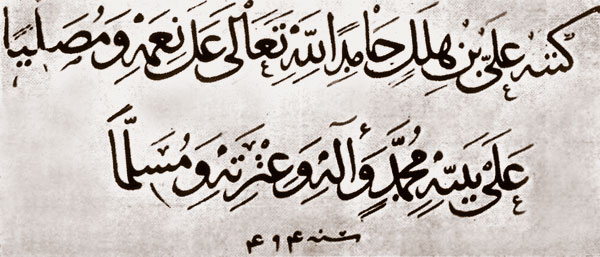 كتبه عَلىُّ بنُ هِلَلٍ حَامِدًا لِلّهِ تَعَالَى عَلى نِعَمِهِ وَمُصَلِّيًا
عَلَى نَبِيِّهِ مُحَمَّدٍ وَآلِهِ وَعِتْرَتِهِ وَمُسَلِّمًا
سنه